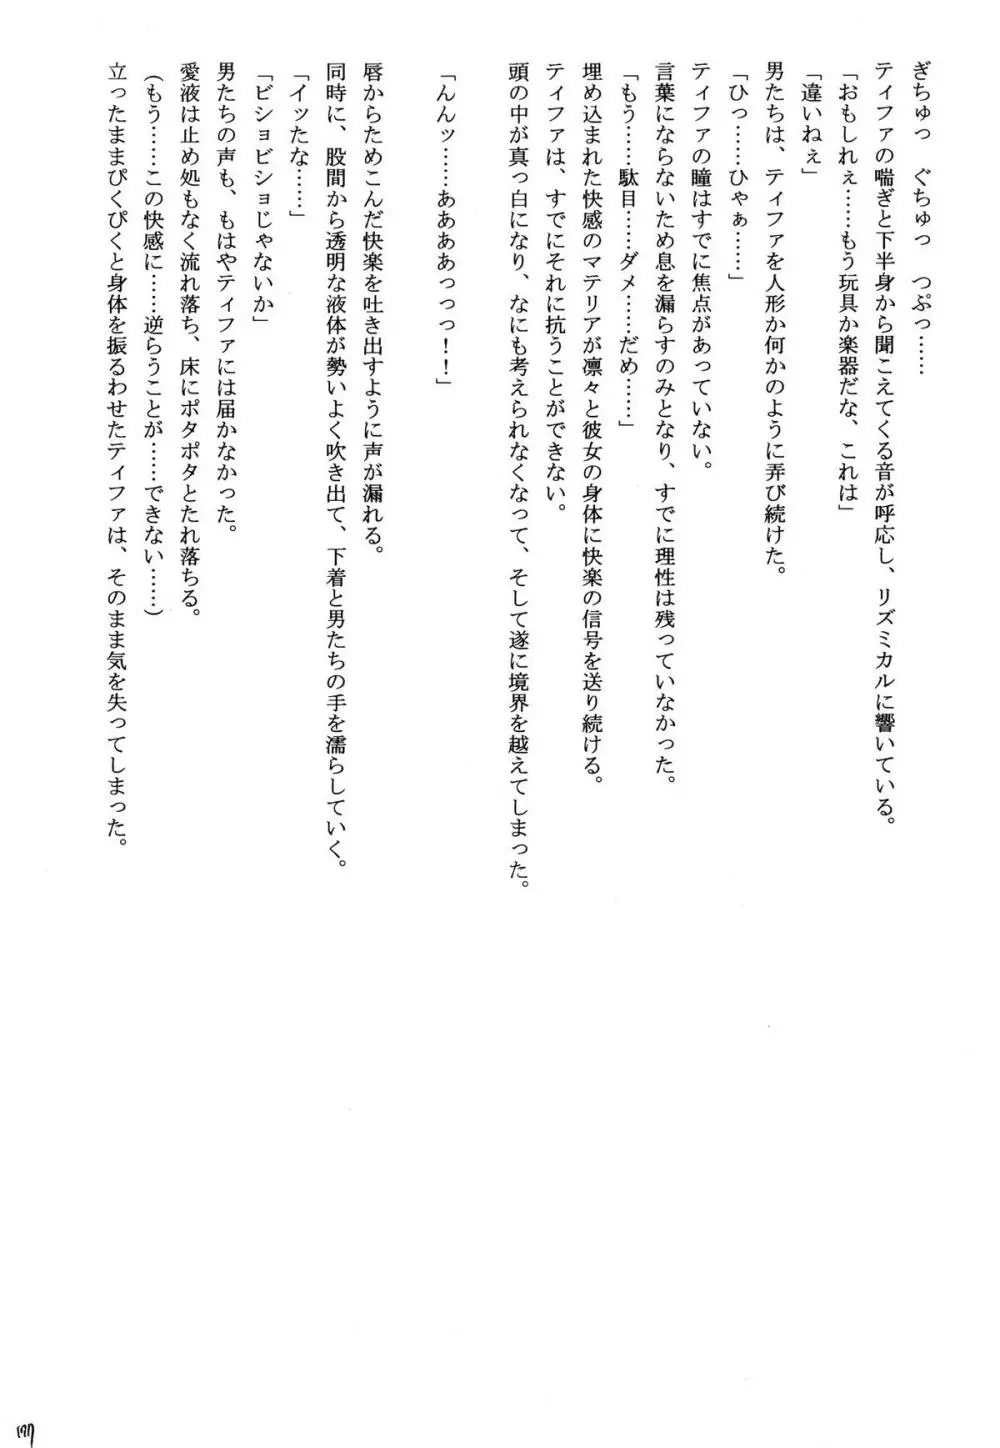 ぎちゅっ　ぐちゅっ　つぷっ……
ティファの喘ぎと下半身から聞こえてくる音が呼応し、リズミカルに響いている。
「おもしれぇ……もう玩具か楽器だな、これは」
「違いねぇ」
男たちは、ティファを人形か何かのように弄び続けた。
「ひっ……ひゃぁ……」
ティファの瞳はすでに焦点があっていない。
言葉にならないため息を漏らすのみとなり、すでに理性は残っていなかった。
「もう……駄目……ダメ……だめ……」
埋め込まれた快感のマテリアが凛々と彼女の身体に快楽の信号を送り続ける。
ティファは、すでにそれに抗うことができない。
頭の中が真っ白になり、なにも考えられなくなって、そして遂に境界を越えてしまった。
「んんッ……ああああっっっ！！」
唇からためこんだ快楽を吐き出すように声が漏れる。
同時に、股間から透明な液体が勢いよく吹き出て、下着と男たちの手を濡らしていく。
「イッたな……」
「ビショビショじゃないか」
男たちの声も、もはやティファには届かなかった。
愛液は止め処もなく流れ落ち、床にポタポタとたれ落ちる。
(もう……この快感に……逆らうことが……できない……)
立ったままぴくぴくと身体を振るわせたティファは、そのまま気を失ってしまった。
197